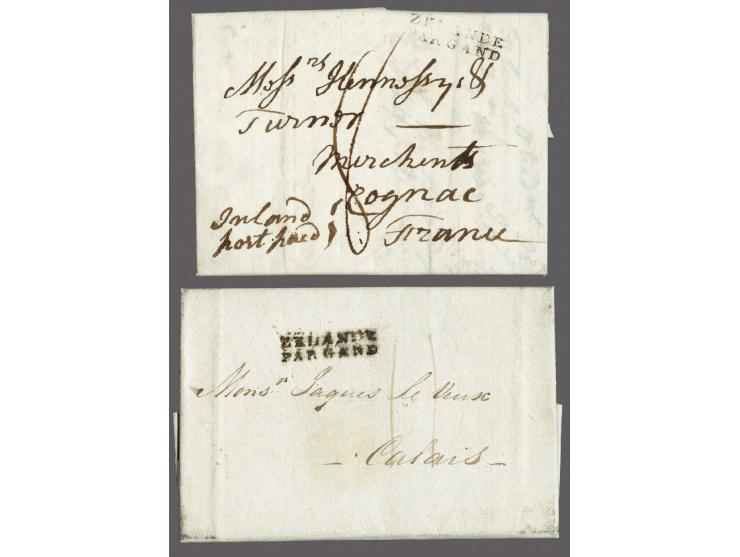 ZELANDE
PAR GAND
Messrs Hennessy &
Turner
Merchents
Cognac
France
Inland
post paid
ZELANDE
PAR GAND
Monsr Jaques le Veux
- Calais -